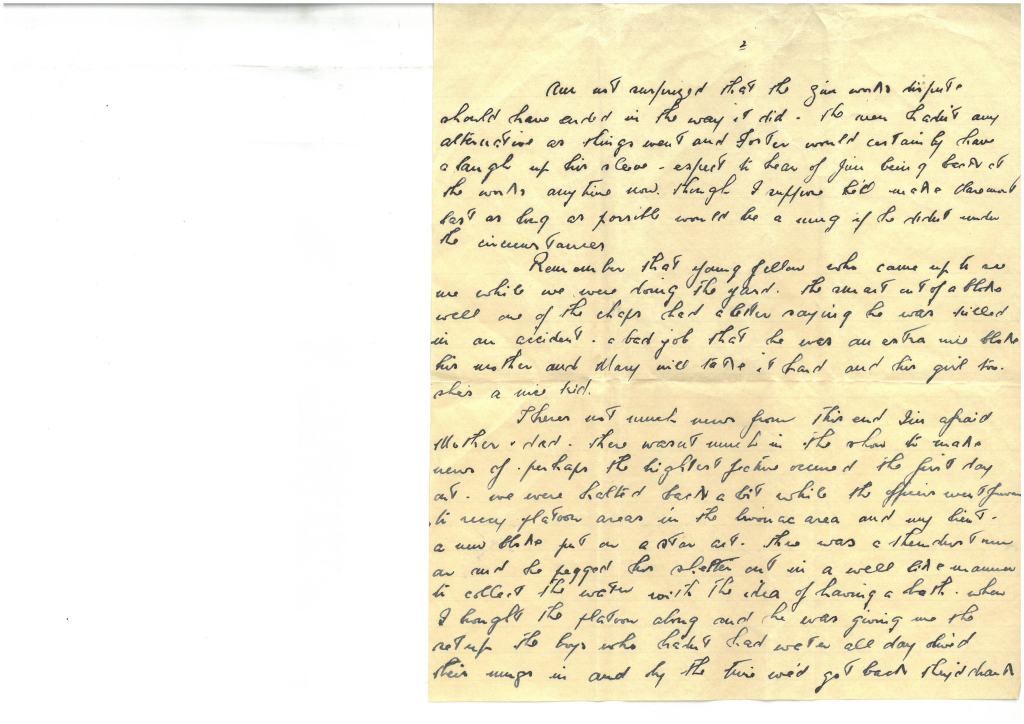 2
Am not surprized that the gun works dispute
should have ended in the way it did - the men hadn't any
alternative as things went and Foster would certainly have
a laugh up his sleeve - expect to hear of Jim being back at
the works anytime now. though I suppose he'll make
last as long as possible would be a mug if he didnt under
the circumstances
Remember that young fellow who came up to see
me while we were doing the yard. the smart cut of a bloke
well one of the chaps had a letter saying he was killed
in an accident. a bad job that he was an extra nice bloke
his mother and Mary will take it hard and his girl too.
shes a nice kid.
Theres not much news from this end I'm afraid
Mother & dad. there wasnt much in the show to make
news of. perhaps the brightest feature occured the first day
out. we were halted back a bit while the officers went
to reccy platoon areas in the bivouac area and my Lieut.
a new bloke put on a star act. there was a
on and he pegged his shelter out in a well like manner
to collect the water with the idea of having a bath. when
I bought the platoon along and he was giving me the
set up the boys who hadnt had water all day dived
their mugs in and by the time we'd got back they'd drank